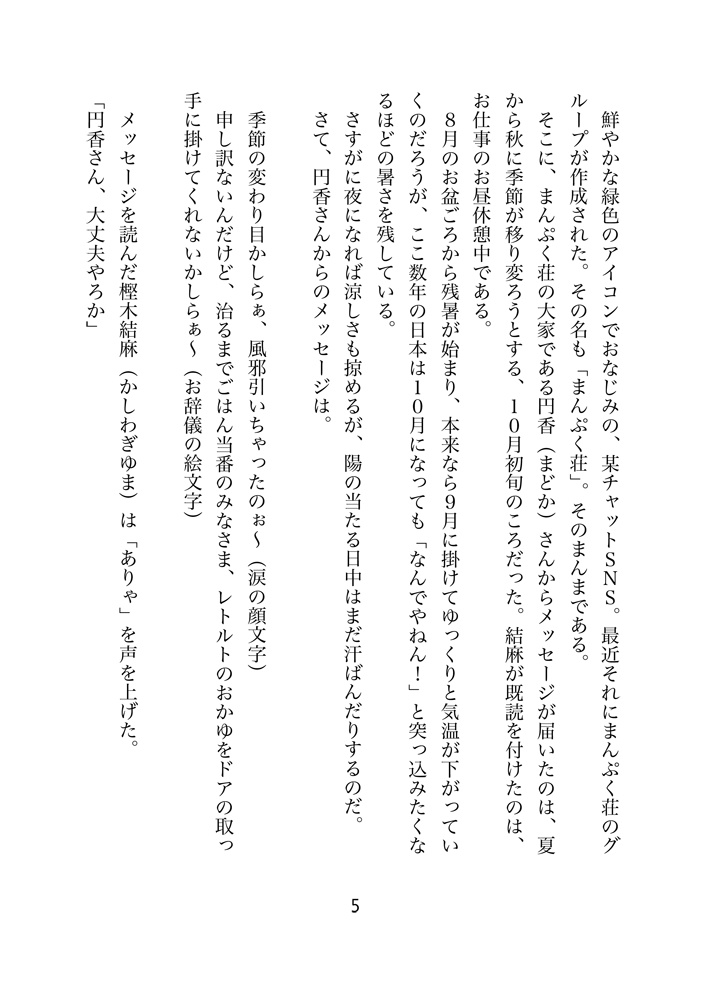 鮮やかな緑色のアイコンでおなじみの、某チャットＳＮＳ。最近それにまんぷく荘のグ
ループが作成された。その名も「まんぷく荘」。そのまんまである。
そこに、まんぷく荘の大家である円香（まどか）さんからメッセージが届いたのは、夏
から秋に季節が移り変ろうとする、１０月初旬のころだった。結麻が既読を付けたのは、
お仕事のお昼休憩中である。
８月のお盆ごろから残暑が始まり、本来なら９月に掛けてゆっくりと気温が下がってい
くのだろうが、ここ数年の日本は１０月になっても「なんでやねん！」と突っ込みたくな
るほどの暑さを残している。
さすがに夜になれば涼しさも掠めるが、陽の当たる日中はまだ汗ばんだりするのだ。
さて、円香さんからのメッセージは。
季節の変わり目かしらぁ、風邪引いちゃったのぉ〜（涙の顔文字）
申し訳ないんだけど、治るまでごはん当番のみなさま、レトルトのおかゆをドアの取っ
手に掛けてくれないかしらぁ〜（お辞儀の絵文字）
メッセージを読んだ樫木結麻（かしわぎゆま）は「ありゃ」を声を上げた。
「円香さん、大丈夫やろか」
5